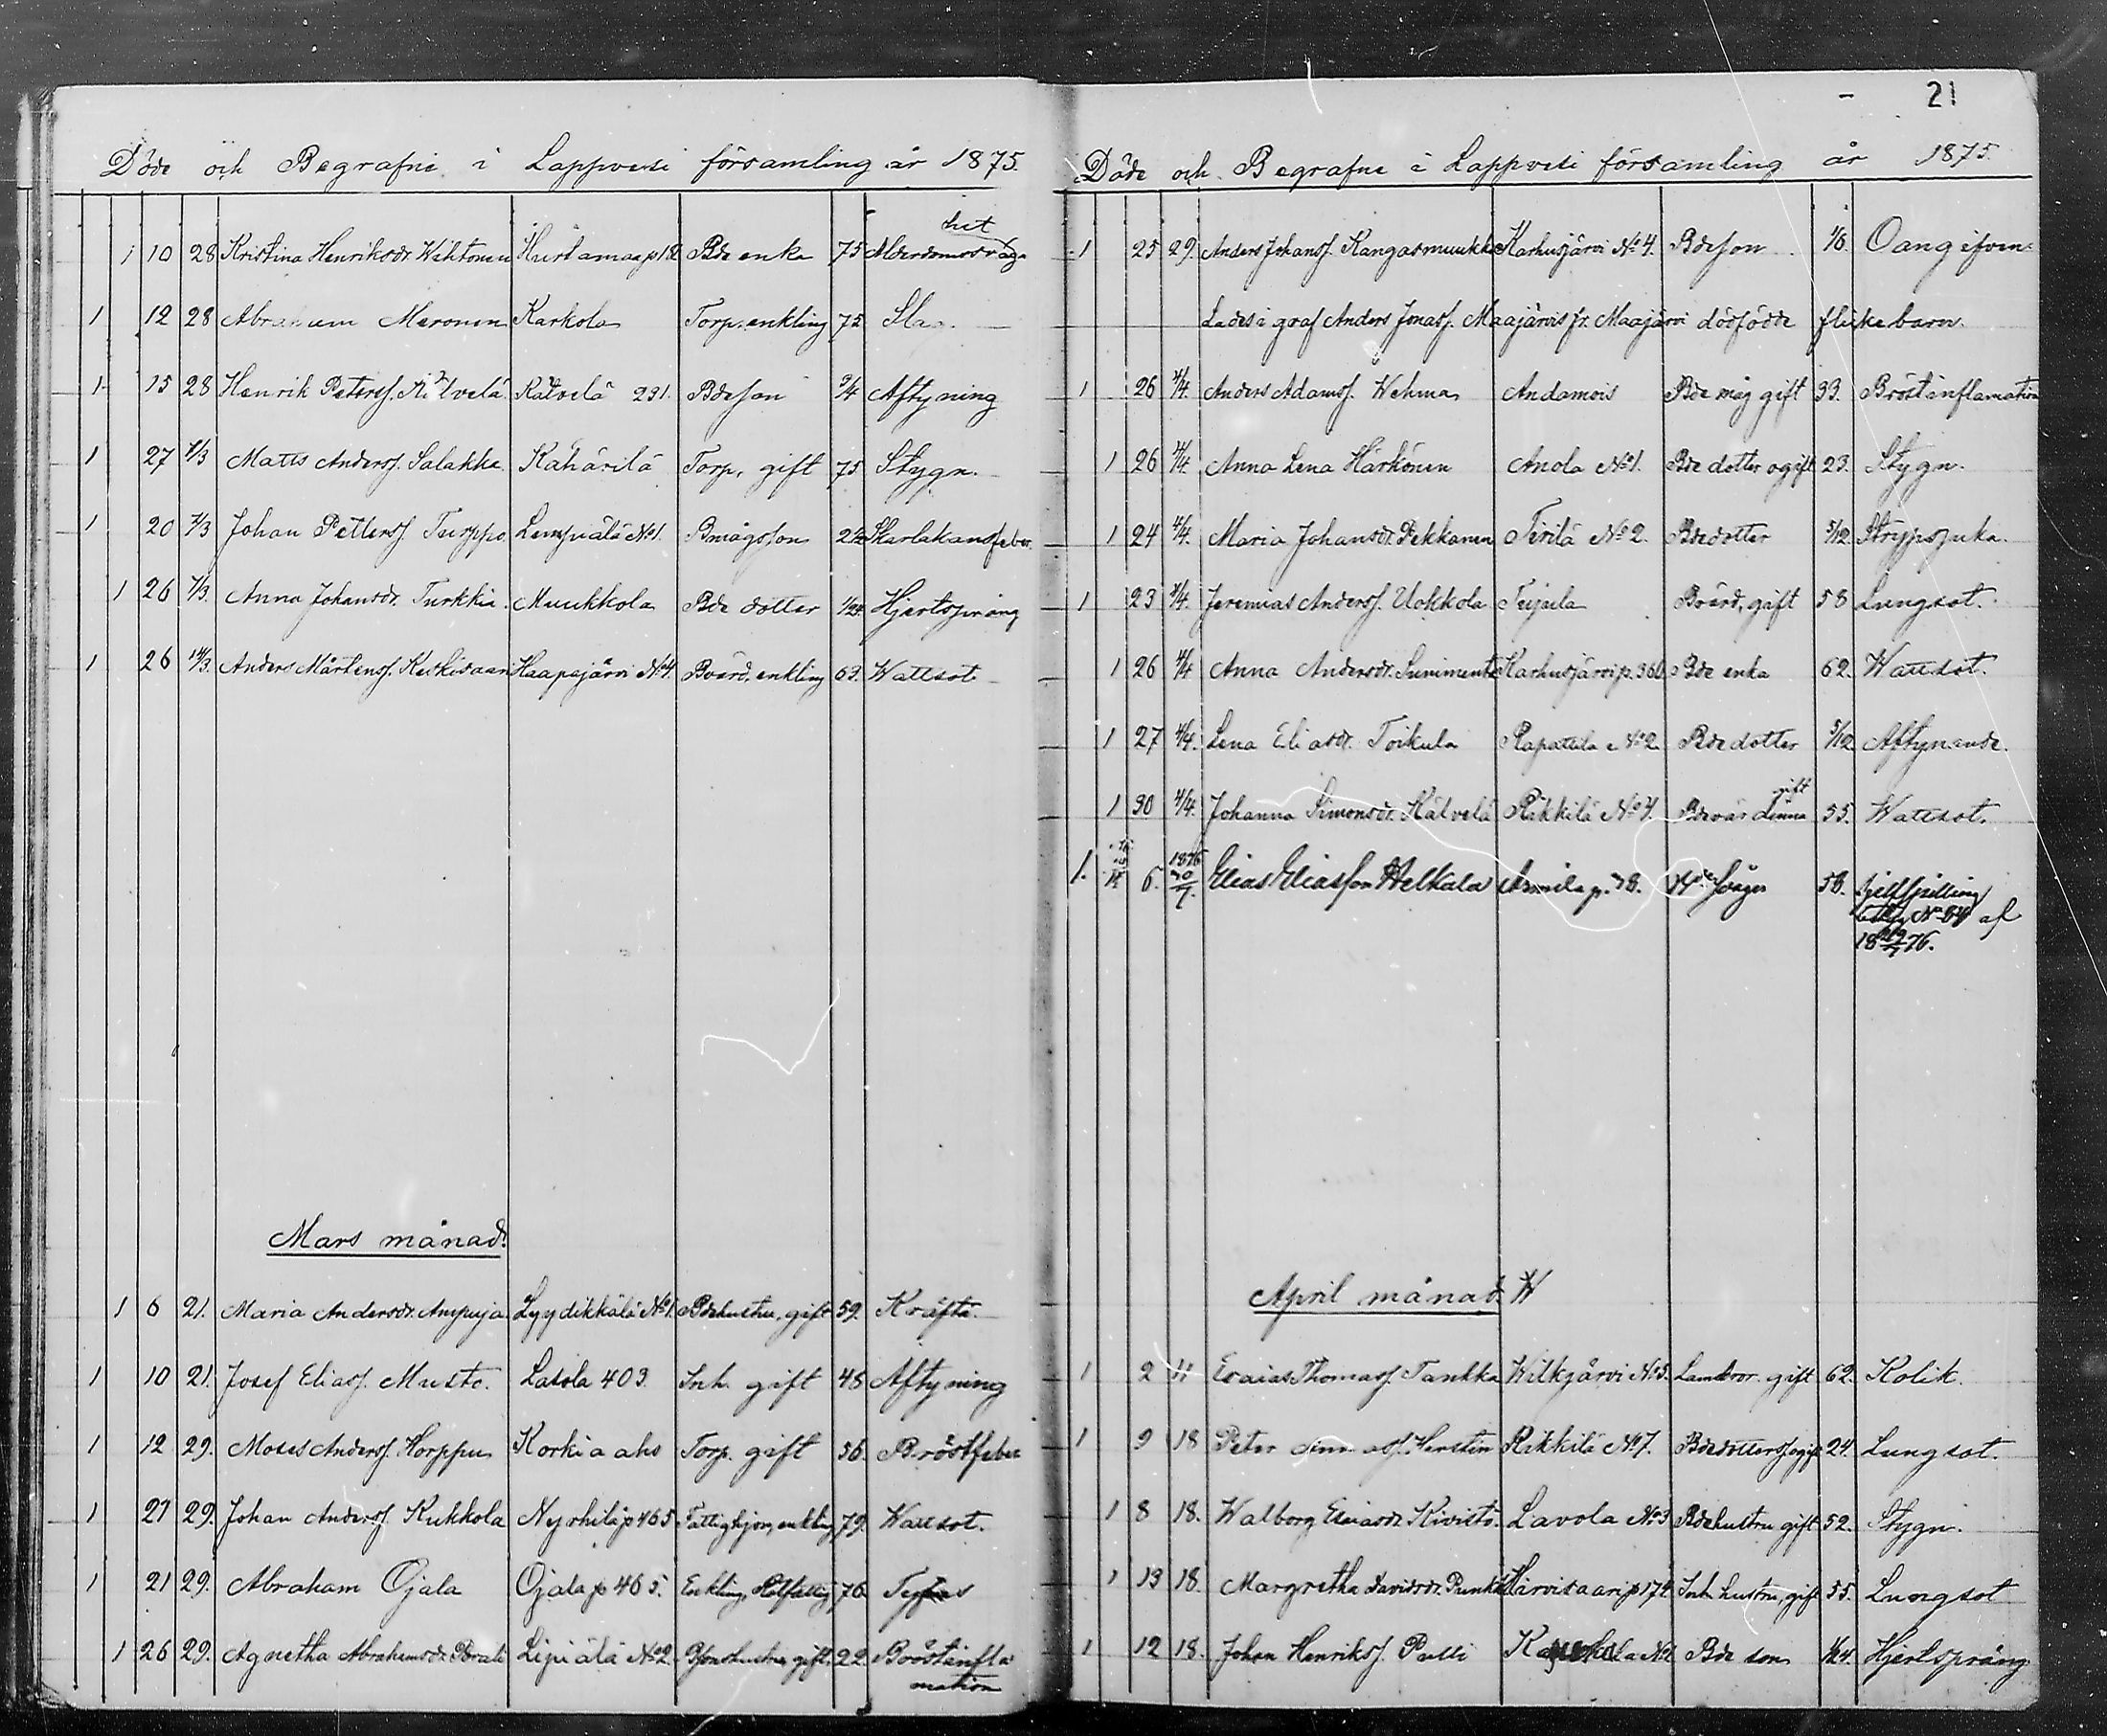 Döde och Begrafne i Lappvesi församling år 1875.
1 10 28 Kristina Henriksdr. Wihtonen Hurtamaa p182 Bde enka 75 Ålderdomssvaghet
1 12 28 Abraham Meronen Karkola Torp. enkling 75 Slag.
1 15 28 Henrik Peterss. Kätvelä Kätvelä 231. Bdeson 3/4 Aftyning
1 27 7/3 Matts Anderss. Salakka Kähärilä Torp. gift 75 Stygn.
1 20 7/3 Johan Petterss. Turppo Lempiälä No 1. Bmågsson Skarlakansfeber.
1 26 7/3. Anna Johansdr. Turkkia. Muukkola Bde dotter 1/24 Hjertsprång
1 26 14/3. Anders Mårtenss. Keskisaari Haapajärvi No 4. Boård. enkling 63. Wattsot
Mars månad.
1 6 21. Maria Andersdr. Ampuja Lyydikkälä No 1. Bdehustru, gift 59. Kräfta.
1 10 21. Josef Eliass. Musto. Lasola 403. Inh. gift 48 Aftyning
1 12 29. Moses Anderss. Horppu Korkia aho Torp. gift 56. Bröstfeber
1 21 29. Johan Anderss. Kukkola Nyrhilä p465 Fattighjon, enkling 79. Wattsot.
1 21 29. Abraham Ojala Ojala p 465. Enkling, 76
1 26 29. Agnetha Abrahamsdr. Lipiälä No 2. gift. 22 Bröstinflamation
21
Döde och Begrafne i Lappvesi församling år 1875.
1 25 29. Anders Johanss. Kangasmuukko Karhusjärvi No 4. Bdeson 1/6. Oangifven.
Lades i graf Anders Jonass. Maajärvis fr. Maajärvi dödfödde flickebarn.
1 26 4/4. Anders Adamss. Wehmas Andamois Bde måg gift 33. Bröstinflamation
1 26 4/4. Anna Lena Härkönen Anola No 1. Bde dotter ogift 23. Stygn.
1 24 4/4. Maria Johansdr. Pekkanen Tirilä No 2. Bdedotter 5/12. Strypsjuka.
1 23 4/4. Jeremias Anderss. Uokkola Boård, gift 58 Lungsot.
1 26 4/4 Anna Andersdr. Sunimento Karhusjärvi p.366 Bde enka 62. Wattsot.
1 27 4/4. Lena Eliasdr. Toikula Rapattila No 2 Bde dotter 5/12 Aftynande.
1 30 4/4. Johanna Simonsdr. Kätvelä Rikkilä No 7. Bdevärdinna gift 55. Wattsot.
1. 6. 1876 Elias Eliasson Helkala Armila p. 78. 58. No 54 af
1876.
April månad.
1 2 11 Esaias Thomass. Tankka Wilkjärvi No 5. Landtvär. gift 62. Kolik.
1 9 18 Peter Kerstin Rikkilä No 7. Bdedotters. ogift 24. Lungsot.
1 8 18. Walborg Esaiasdr. Kivistö. Lavola No 3 Bdehustru gift 52. Stygn.
1 13 18. Margretha Davidsdr. Järvisaari p 174 Inh. hustru, gift 55. Lungsot
1 12 18. Johan Henrikss. Pulli Bde son 1/24. Hjertsprång